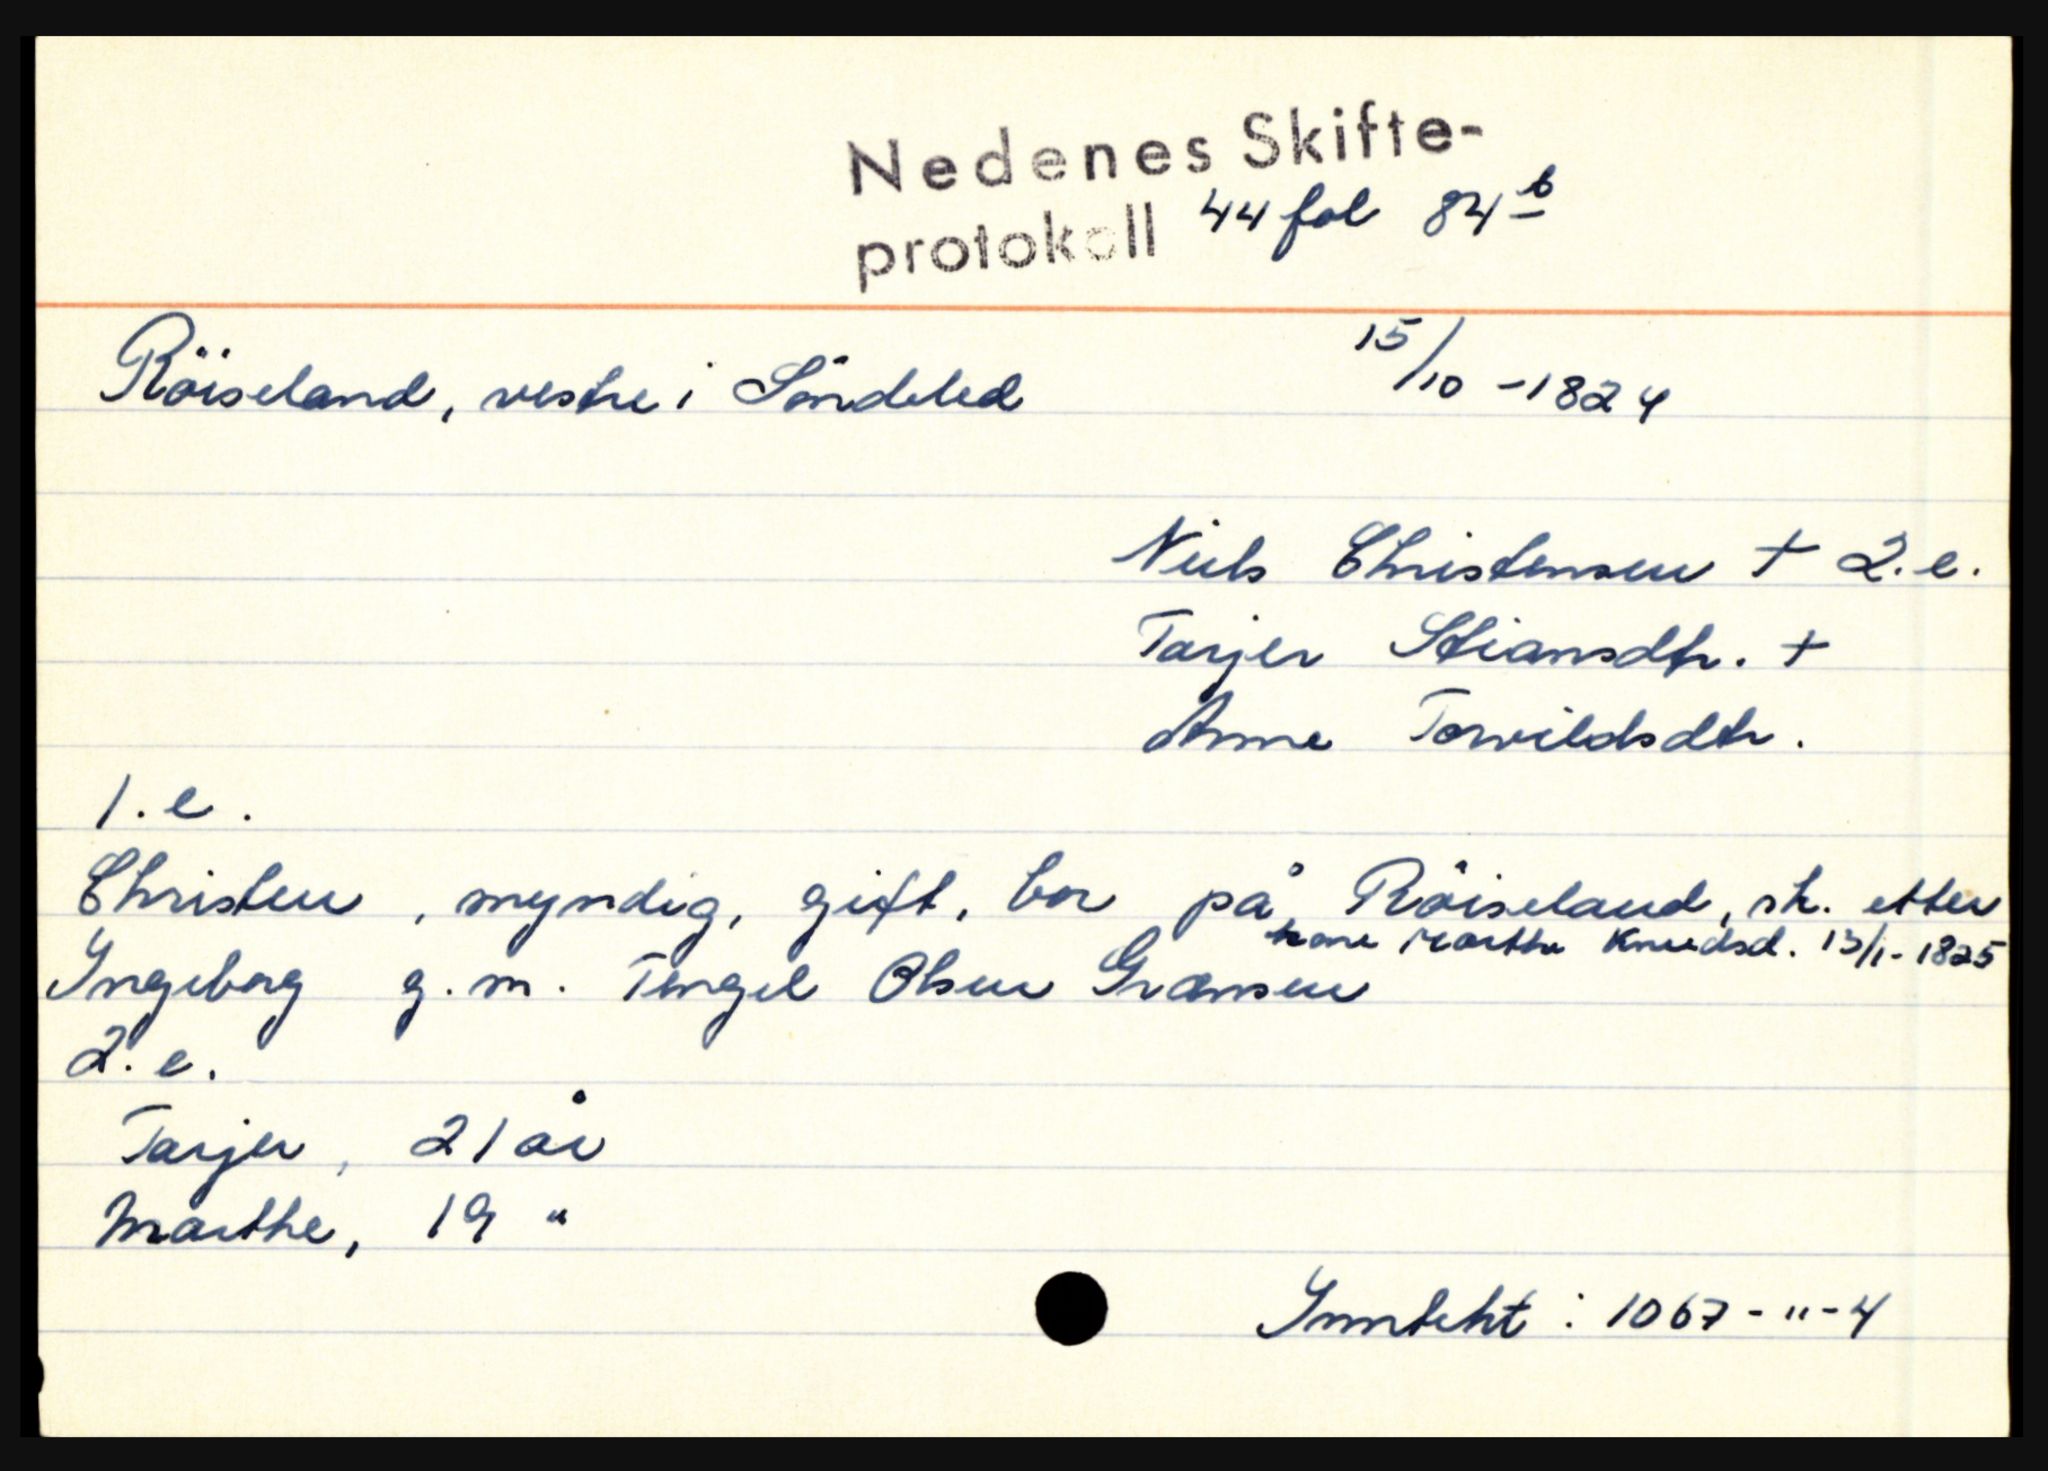 Nedenes Skifte-
protokoll 44 fol 84 b
Röiseland, vestre i Söndeled 15/10 - 1824
Niels Christensen + 2.e.
Tarjer Stiansdtr. +
Anne Torvildsdtr.
1. e.
Christen, myndig, gift, bor på Röiseland, sk. etter
kone Marthe Knudsd. 13/1- 1825
Ingeborg g. m. Tengel Olsen Gransen
2. e.
Tarjer, 21 år
Marthe, 19 "
Inntekt: 1067 - " - 4